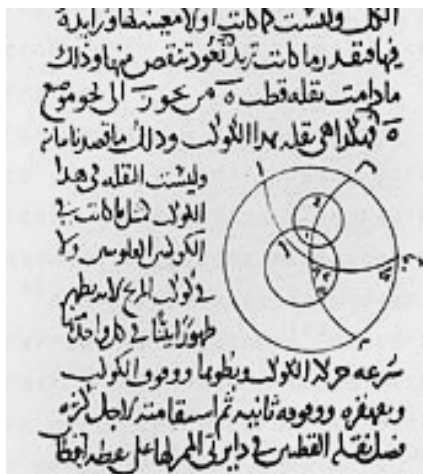 الكل وليست كما كانت اولا معينة لها وزايدة
فيها فبقدر ما كانت تزيد تعود تنقص منها وذلك
ما دامت نقله قطب ة من نحو ر الى نحو موضع
ة فهكذا هي نقله هذا الكوكب وذلك ما قصدنا بيانه
وليست النقله في هذا
الكوكب كمثل ما كانت في
الكوكبين العلويين ولا
في كوكب المريخ لانه يظهر
ظهورا بينا في كل واحد
سرعه حركة الكوكب وبطوها ووقوف الكوكب
وتقهقره ووقوفه ثانيه ثم استقامته لاجل كثره
فضل تقدم القطبين في دايرتي الممر لها على